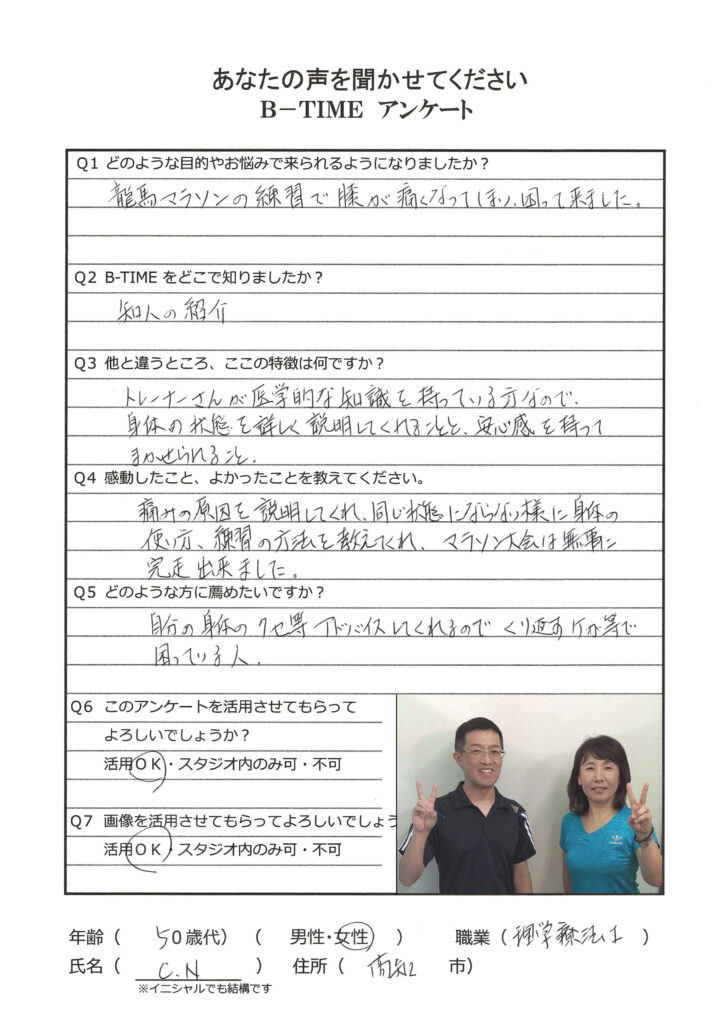 あなたの声を聞かせてください
B−TIME アンケート
Q1 どのような目的やお悩みで来られるようになりましたか？
龍馬マラソンの練習で膝が痛くなってしまい、困って来ました。
Q2 B-TIME をどこで知りましたか？
知人の紹介
Q3 他と違うところ、ここの特徴は何ですか？
トレーナーさんが医学的な知識を持っている方なので、
身体の状態を詳しく説明してくれることと、安心感を持って
まかせられること。
Q4 感動したこと、よかったことを教えてください。
痛みの原因を説明してくれ、同じ状態にならない様に身体の
使い方、練習の方法を教えてくれ、マラソン大会は無事に
完走出来ました。
Q5 どのような方に薦めたいですか？
自分の身体のクセ等アドバイスしてくれるのでくり返すケガ等で
困っている人。
Q6 このアンケートを活用させてもらって
よろしいでしょうか？
活用OK・スタジオ内のみ可・不可
Q7 画像を活用させてもらってよろしいでしょう
活用OK・スタジオ内のみ可・不可
adidas
年齢（ 50歳代） （ 男性・女性 ） 職業（理学療法士 ）
氏名（ C.N ） 住所（ 高知 市）
※イニシャルでも結構です